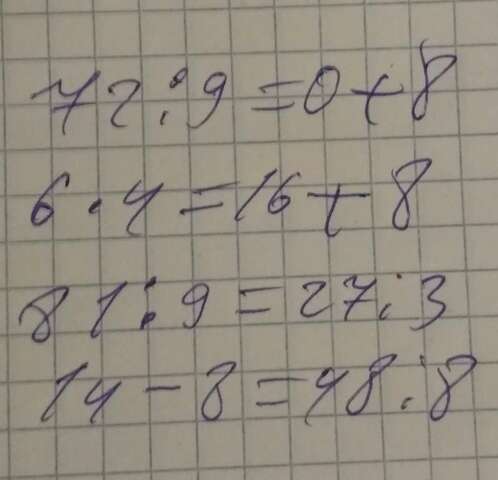 72 : 9 = 0 + 8
6 · 4 = 16 + 8
81 : 9 = 27 : 3
14 - 8 = 48 : 8